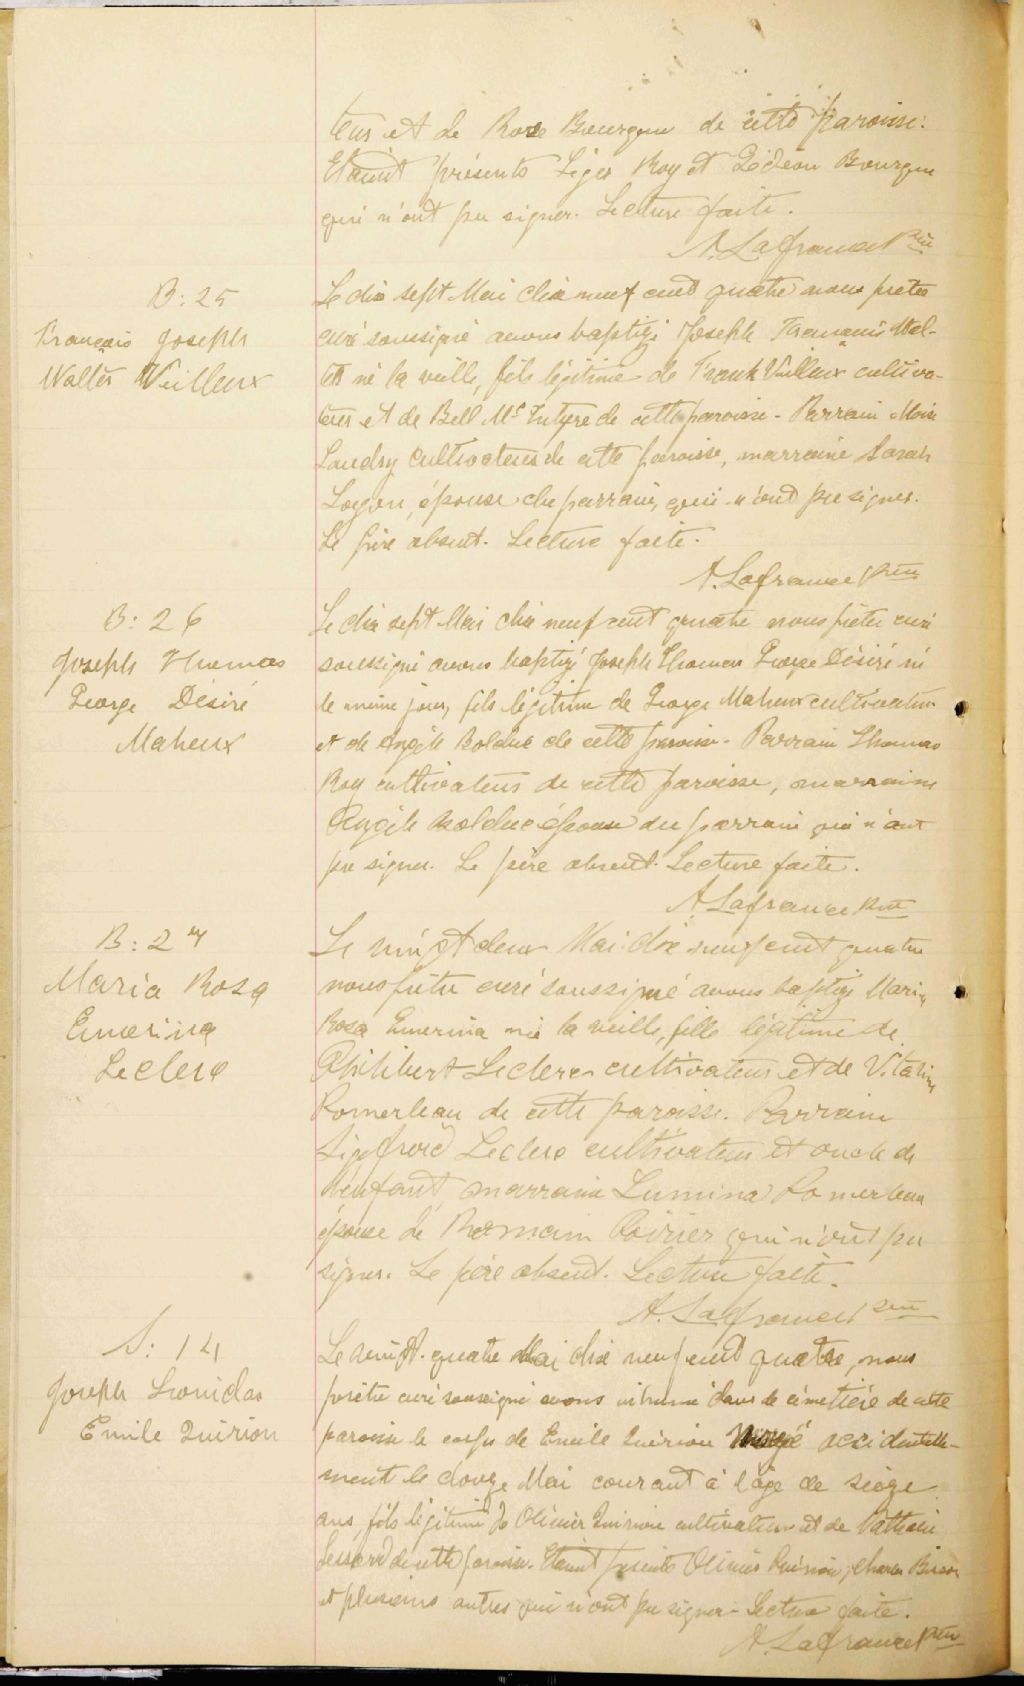 teur et de Rose Bourque de cette paroisse.
Etaient présents Léger Roy et Gédéon Bourque
qui n'ont pu signer. Lecture faite.
A. Lafrance Ptre
B: 25
François Joseph
Walter Veilleux
Le dix sept Mai dix neuf cent quatre nous prêtre
curé soussigné avons baptizé Joseph François Wal-
ter né la veille, fils légitime de Frank Veilleux cultiva-
teur et de Bell McIntyre de cette paroisse. Parrain Moïse
Landry cultivateur de cette paroisse, marraine Sarah
épouse du parrain, qui n'ont pu signer.
Le père absent. Lecture faite.
A. Lafrance Ptre
B: 26
Joseph Thomas
George Désiré
Maheux
Le dix sept Mai dix neuf cent quatre nous prêtre curé
soussigné avons baptizé Joseph Thomas George Désiré né
le même jour, fils légitime de George Maheux cultivateur
et de Angèle Bolduc de cette paroisse. Parrain Thomas
Roy cultivateur de cette paroisse, marraine
Angèle Bolduc épouse du parrain qui n'ont
pu signer. Le père absent. Lecture faite.
A. Lafrance Ptre
B: 27
Maria Rosa
Emerina
Leclerc
Le vingt deux Mai dix neuf cent quatre
nous prêtre curé soussigné avons baptizé Maria
Rosa Emerina née la veille, fille légitime de
Philibert Leclerc cultivateur et de Vitaline
Pomerleau de cette paroisse. Parrain
Sigefroid Leclerc cultivateur et oncle de
l'enfant marraine Lumina Pomerleau
épouse de Romain Poirier qui n'ont pu
signer. Le père absent. Lecture faite.
A. Lafrance Ptre
S: 14
Joseph Leonidas
Emile Quirion
Le vingt quatre Mai dix neuf cent quatre, nous
prêtre curé soussigné avons inhumé dans le cimetière de cette
paroisse le corps de Emile Quirion noyé accidentelle-
ment le douze Mai courant à l'âge de seize
ans, fils légitime de Olivier Quirion cultivateur et de Nathalie
Lessard de cette paroisse. Etaient présents Olivier Quirion, Charles
et plusieurs autres qui n'ont pu signer. Lecture faite.
A. Lafrance Ptre